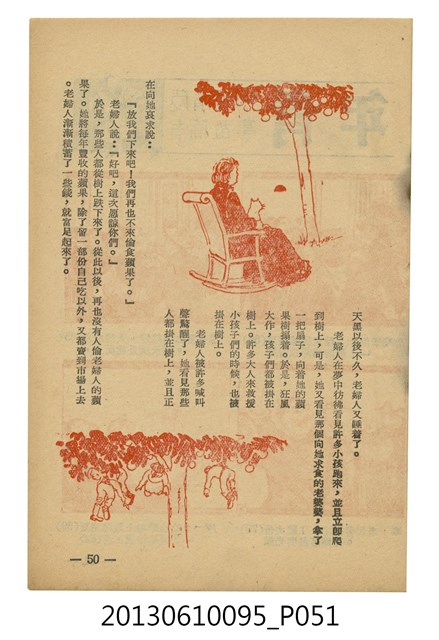 天黑以後不久，老婦人又睡着了。
老婦人在夢中彷彿看見許多小孩跑來，並且立卽爬
到樹上，可是，她又看見那個向她求食的老婆婆，拿了
一把扇子，向着她的蘋
果樹搧着。於是，狂風
大作，孩子們都被掛在
樹上。許多大人來救援
小孩子們的時候，也被
掛在樹上。
老婦人被許多喊叫
聲驚醒了，她看見那些
人都掛在樹上，並且正
在向她哀求說：
「放我們下來吧！我們再也不來偷食蘋果了。」
老婦人說：「好吧，這次愿諒你們。」
於是，那些人都從樹上跌下來了。從此以後，再也沒有人偷老婦人的蘋
果了。她將每年豐收的蘋果，除了留一部份自己吃以外，又都賣到市場上去
。老婦人漸漸積蓄了一些錢，就富足起來了。
— 50 —
20130610095_P051